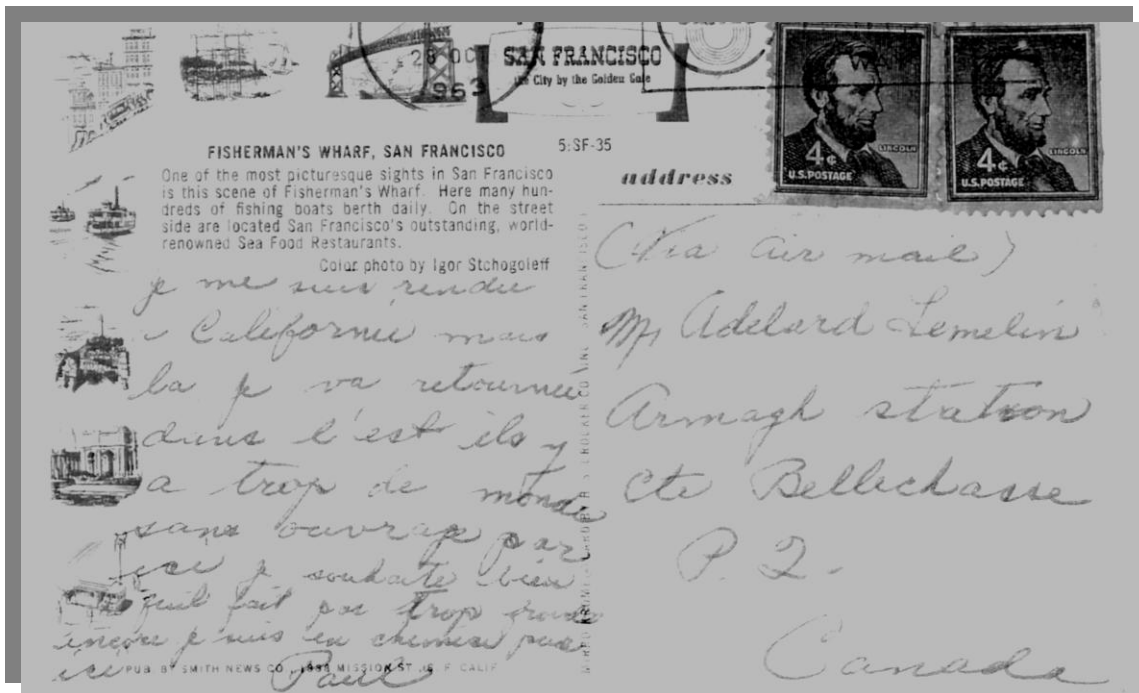 28 OC
1963
SAN FRANCISCO
the City by the Golden Gate
4¢
LINCOLN
U.S. POSTAGE
4¢
LINCOLN
U.S. POSTAGE
FISHERMAN'S WHARF, SAN FRANCISCO
5:SF-35
One of the most picturesque sights in San Francisco
is this scene of Fisherman's Wharf. Here many hun-
dreds of fishing boats berth daily. On the street
side are located San Francisco's outstanding, world-
renowned Sea Food Restaurants.
Color photo by Igor Stchogoleff
address
je me suis rendu
Californie mais
la je va retournée
dans l'est ils y
a trop de monde
sans ouvrage par
ici je souhaite bien
quil fait pas trop
encore je suis en chemise par
ici
Paul
(Via air mail)
Mr Adelard Lemelin
Armagh station
Cte Bellechasse
P. Q.
Canada
PUB. BY SMITH NEWS CO., MISSION ST., S. F. CALIF